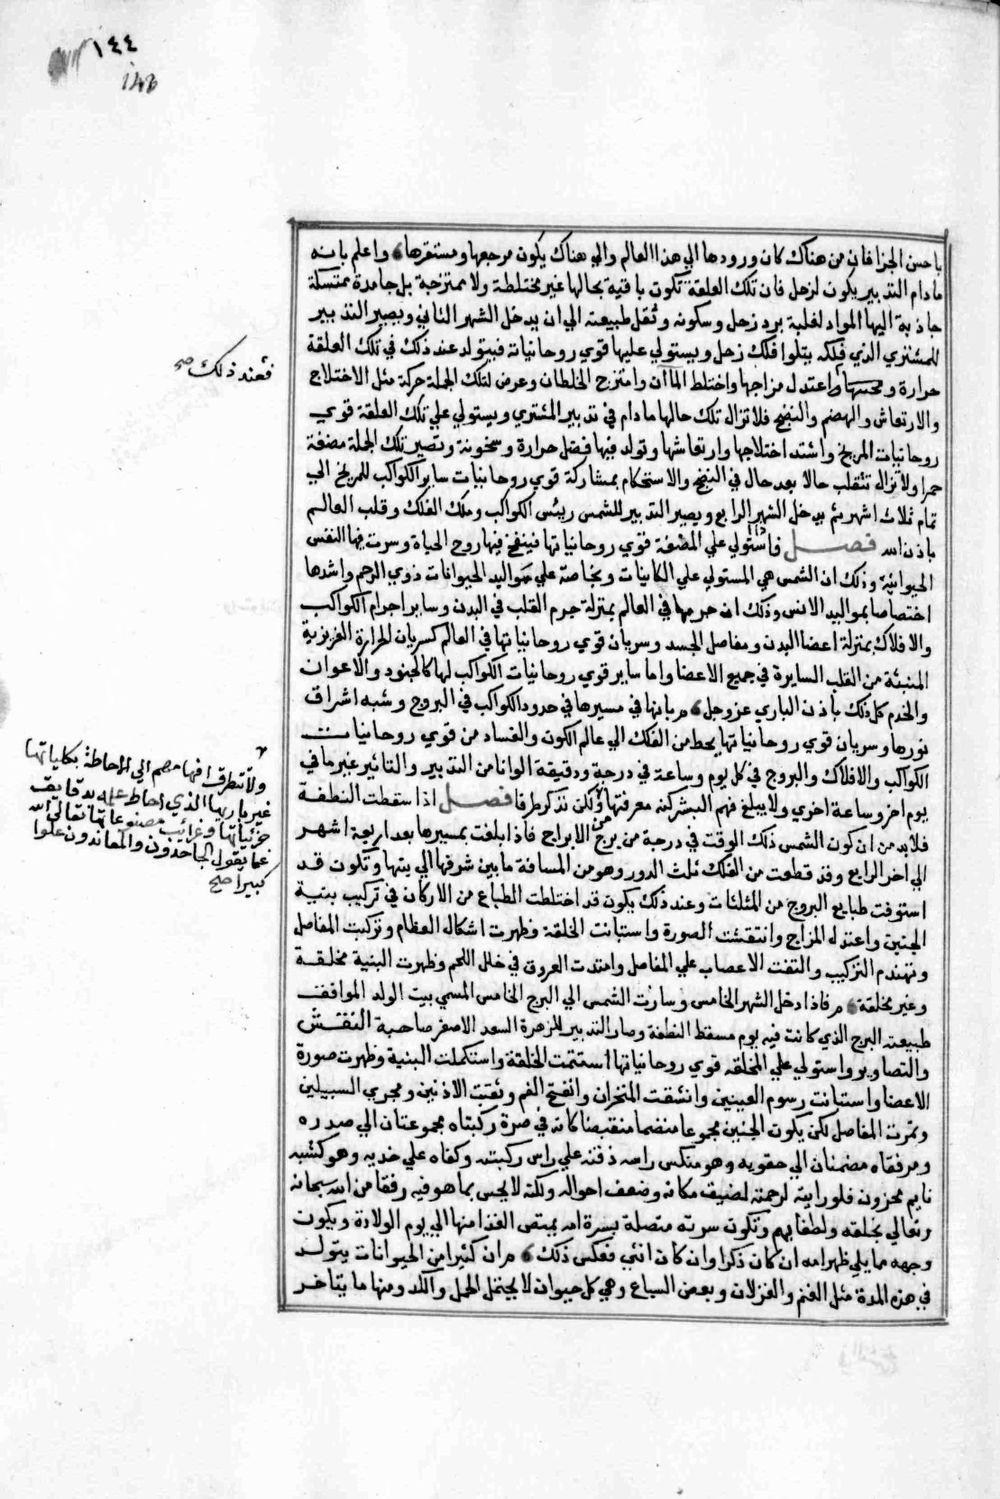 ١٤٤
146
باحسن الجزا فان من هناك كان ورودها الي هذا العالم والي هناك يكون مرجعها ومستقرها واعلم بانه
مادام التدبير يكون لزحل فان تلك العلقة تكون باقية بحالها غير مختلطة ولا ممتزجة بل جامدة متمسكة
جاذبة اليها المواد لغلبة برد زحل وسكونه وثقل طبيعته الي ان يدخل الشهر الثاني ويصير التدبير
للمشتري الذي فلكه يتلوا فلك زحل ويستولي عليها قوي روحانياته فيتولد عند ذلك في تلك العلقة
فعند ذلك صح
حرارة واعتدل مزاجها واختلط الماآن وامتزج الخلطان وعرض لتلك الجملة حركة مثل الاختلاج
والارتعاش والهضم والنضج فلا تزال تلك حالها مادام في تدبير المشتري ويستولي علي تلك العلقة قوي
روحانيات المريخ واشتد اختلاجها وارتعاشها وتولد فيها فضل حرارة وسخونة وتصير تلك الجملة مضغة
حمرا ولا تزال تتقلب حالا بعد حال في النضج والاستحكام بمشاركة قوي روحانيات ساير الكواكب للمريخ الي
تمام ثلاث اشهر ثم يدخل الشهر الرابع ويصير التدبير للشمس رييس الكواكب وملك الفلك وقلب العالم
باذن الله فصل فاذا استولي علي المضغة قوي روحانياتها فينفخ فيها روح الحياة وسرت فيها النفس
الحيوانية وذلك ان الشمس هي المستولي علي الكاينات وبخاصة علي مواليد الحيوانات ذوي الرحم واشدها
اختصاصا بمواليد الانس وذلك ان جرمها في العالم بمنزلة جرم القلب في البدن وساير اجرام الكواكب
والافلاك بمنزلة اعضا البدن ومفاصل الجسد وسريان قوي روحانياتها في العالم كسريان الحرارة الغريزية
المنبثة من القلب السايرة في جميع الاعضا واما ساير قوي روحانيات الكواكب لها كالجنود والاعوان
والخدم كل ذلك باذن الباري عز وجل بانها في مسيرها في حدود الكواكب في البروج وشبه اشراق
نورها وسريان قوي روحانياتها يحط من الفلك الي عالم الكون والفساد من قوي روحانيات
الكواكب والافلاك والبروج في كل يوم وساعة في درجة ودقيقة الوانا من التدبير والتاثير غير ما في
يوم اخر وساعة اخري ولا يبلغ فهم البشر كنه معرفتها ولكن نذكر طرفا فصل اذا سقطت النطفة
ولا تتطرق افهامهم الي الاحاطة بكلياتها
غير باريها الذي احاط علمه بدقايق
جزئياتها وغرائب مصنوعاتها تعالي الله
عما يقول الجاحدون والمعاندون علوا
كبيرا صح
فلا بد من ان كون الشمس ذلك الوقت في درجة من برج من الابراج فاذا بلغت بمسيرها بعد اربعة اشهر
الي اخر الرابع وقد قطعت من الفلك ثلث الدور وهو من المسافة ما بين شرفها الي بيتها وتكون قد
استوفت طبايع البروج من المثلثات وعند ذلك يكون قد اختلطت الطباع من الاركان في تركيب بنية
الجنين واعتدل المزاج وانتقشت الصورة واستبانت الخلقة وظهرت اشكال العظام وتركبت المفاصل
وتهندم التركيب والتفت الاعصاب علي المفاصل وامتدت العروق في خلل اللحم وظهرت البنية مخلقة
وغير مخلقة فاذا دخل الشهر الخامس وسارت الشمس الي البرج الخامس المسمي بيت الولد الموافق
طبيعته البرج الذي كانت فيه يوم مسقط النطفة وصار التدبير للزهرة السعد الاصغر صاحبة النقش
والتصاوير واستولي علي الخلقه قوي روحانياتها استتمت الخلقة واستكملت البنية وظهرت صورة
الاعضا واستبانت رسوم العينين وانشقت المنخران وانفتح الفم وثقبت الاذنين ومجري السبيلين
وتميزت المفاصل لكن يكون الجنين مجموعا منضما منقبضا كانه في صرة ركبتاه مجموعتان الي صدره
ومرفقاه مضمتان الي حقويه وهو منكس راسه ذقنه علي راس ركبته وكفاه علي خديه وهو كشبه
نايم محزون فلو رايته لرحمته لضيق مكانه وضعف احواله ولكنه لا يحس بما هو فيه رفقا من الله سبحانه
وتعالي بخلقه ولطفا بهم وتكون سرته متصلة بسرة امه يمتص الغذا منها الي يوم الولادة ويكون
وجهه مما يلي ظهر امه ان كان ذكرا وان كان انثي فعكس ذلك ان كثيرا من الحيوانات يتولد
في هذه المدة مثل الغنم والغزلان وبعض السباع وهي كل حيوان لا يحتمل الحمل والكد ومنها ما يتاخر